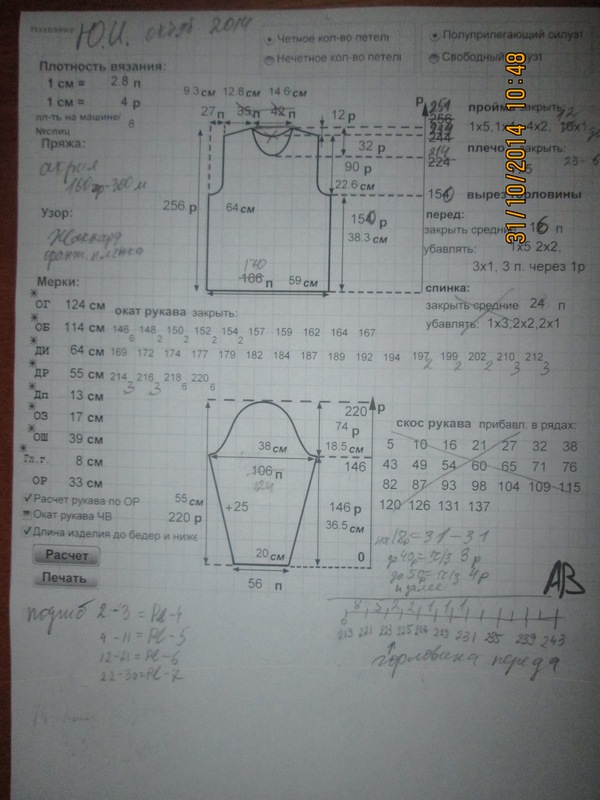 Название Ю.И. октяб 2014
Четное кол-во петель
Нечетное кол-во петель
Полуприлегающий силуэт
Свободный силуэт
Плотность вязания:
1 см = 2.8 п
1 см = 4 р
пл-ть на машине/
№спиц 8
Пряжа:
акрил
100гр-300м
Узор:
Жаккард
Мерки:
ОГ 124 см
ОБ 114 см
ДИ 64 см
ДР 55 см
Дп 13 см
ОЗ 17 см
ОШ 39 см
Гл.г. 8 см
ОР 33 см
Расчет рукава по ОР
Окат рукава ЧВ
Длина изделия до бедер и ниже
Расчет
Печать
9.3 см 12.8 см 14.6 см
27 п 35 п 42 п
12 р
32 р
90 р
22.6 см
256 р
64 см
150 р
38.3 см
170
166 п
59 см
р
244
214
224
150
пройма закрыть:
плечо закрыть:
вырез горловины
перед:
закрыть средние 16 п
убавлять: 1х5 2х2,
3х1, 3 п. через 1р
спинка:
закрыть средние 24 п
убавлять: 1х3,2х2,2х1
31/10/2014 10:48
окат рукава закрыть:
146 148 150 152 154 157 159 162 164 167
6 2 2 2 2
169 172 174 177 179 182 184 187 189 192 194 197 199 202 210 212
2 2 2 3 3
214 216 218 220
3 3 6 6
220 р
74 р
18.5 см
146
38 см
106 п
124
55 см
220 р
+25
146 р
36.5 см
20 см
0
56 п
скос рукава прибавл. в рядах:
5 10 16 21 27 32 38
43 49 54 60 65 71 76
82 87 93 98 104 109 115
120 126 131 137
на 18р = 31-31
до 40р = ч/з 3 р
до 50р = ч/з 4р
и далее
АВ
подгиб 2-3 = Pl-4
9-11 = Pl-5
12-21 = Pl-6
22-30 = Pl-7
8 5 2 2 1 1 1
219 221 223 225 227 229 231 235 239 243
горловина переда